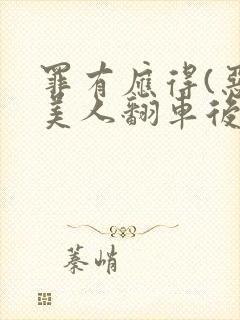 罪有應得(惡
美人翻車後
蓁峭